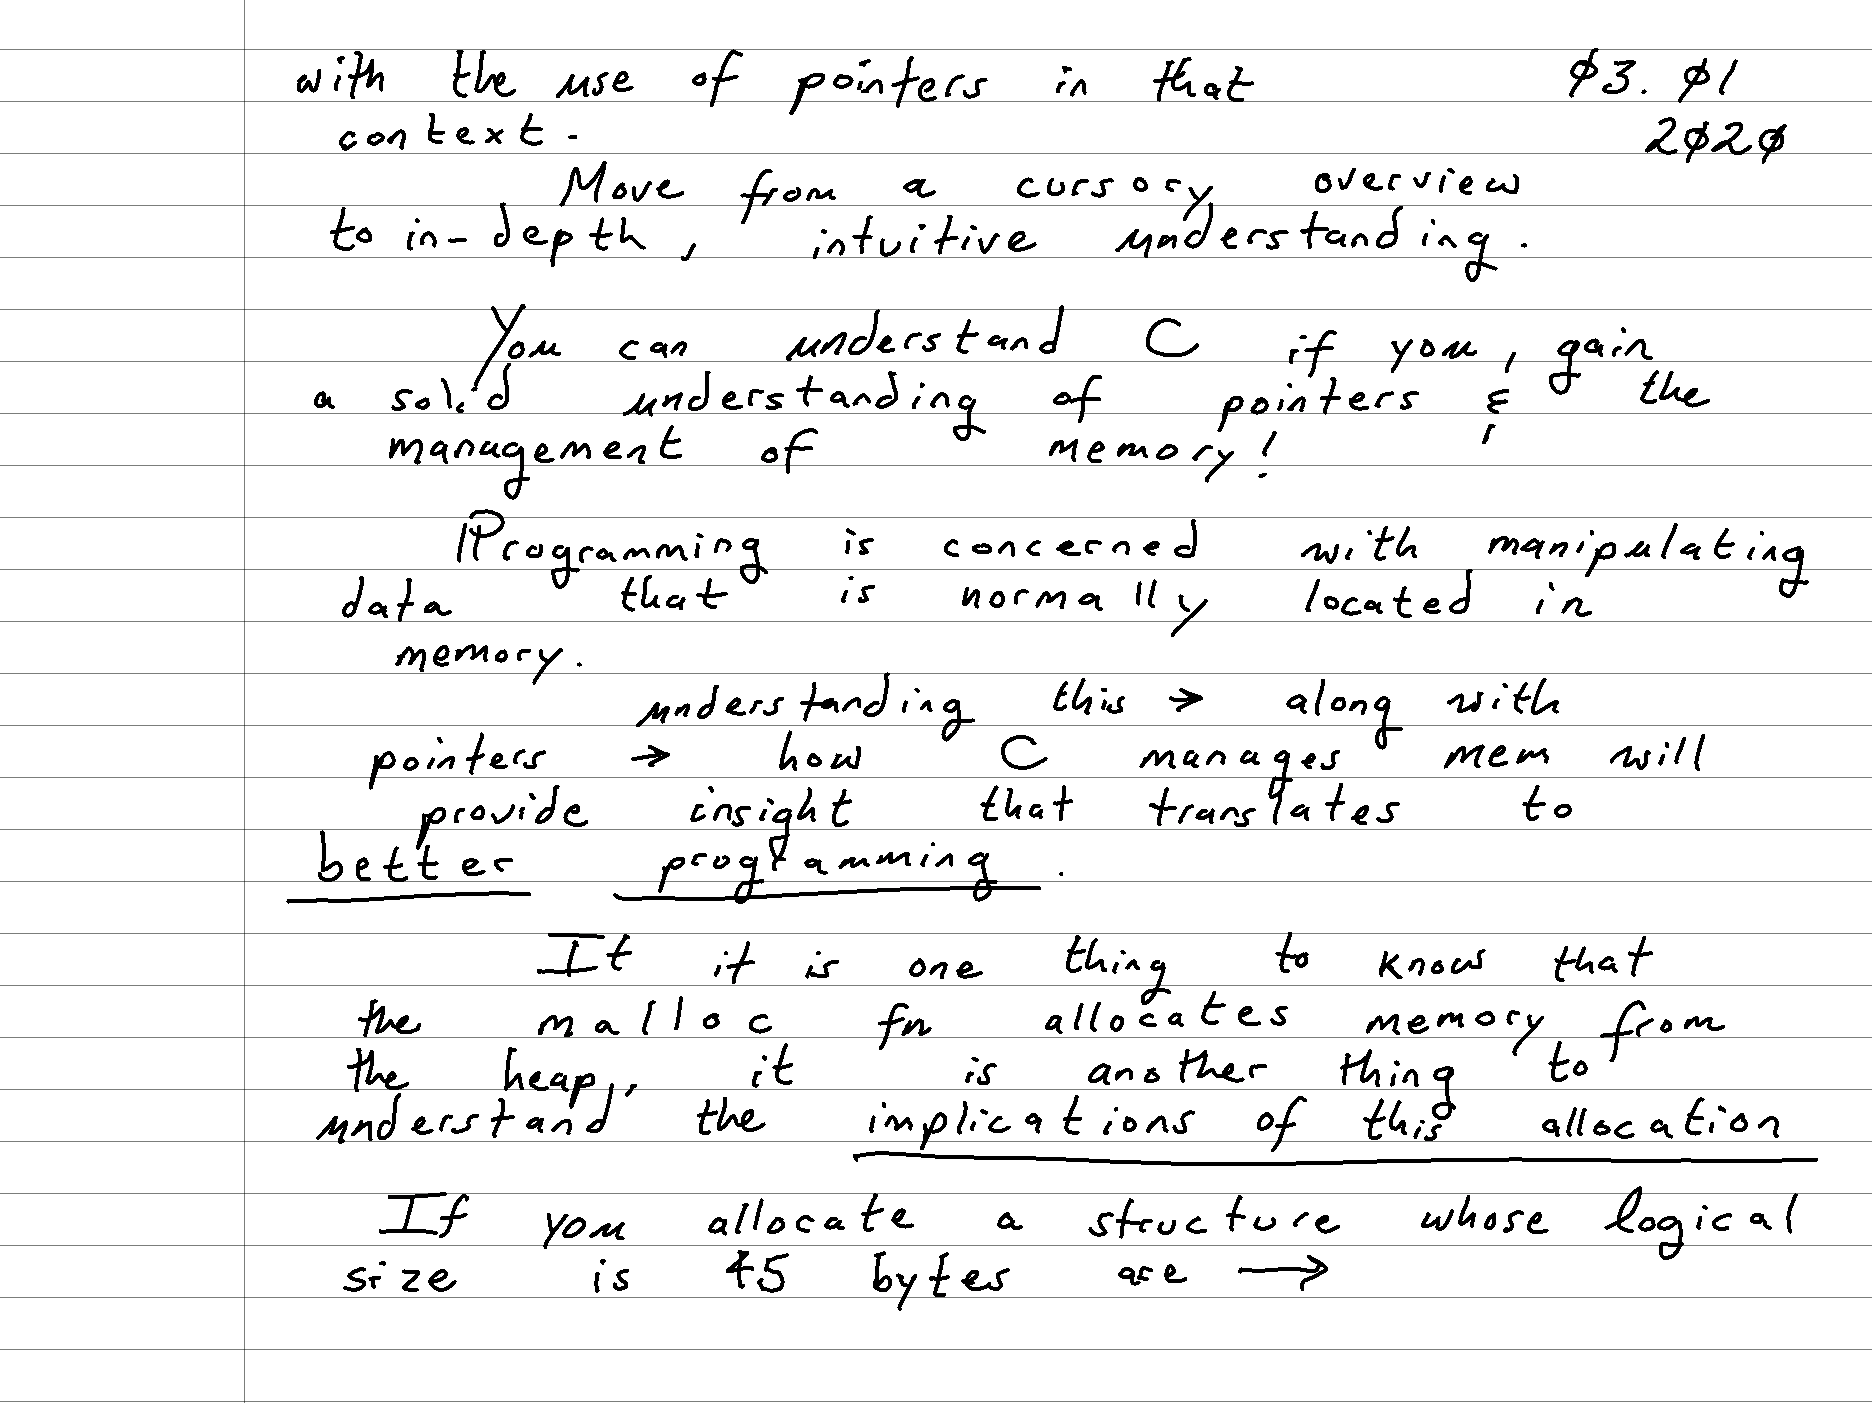 with the use of pointers in that
context.
Ø3. Ø1
2Ø2Ø
Move from a cursory overview
to in-depth, intuitive understanding.
You can understand C if you, gain
a solid understanding of pointers & the
management of memory!
Programming is concerned with manipulating
data that is normally located in
memory.
understanding this → along with
pointers → how C manages mem will
provide insight that translates to
better programming.
It it is one thing to know that
the malloc fn allocates memory from
the heap, it is another thing to
understand the implications of this allocation
If you allocate a structure whose logical
size is 45 bytes are →